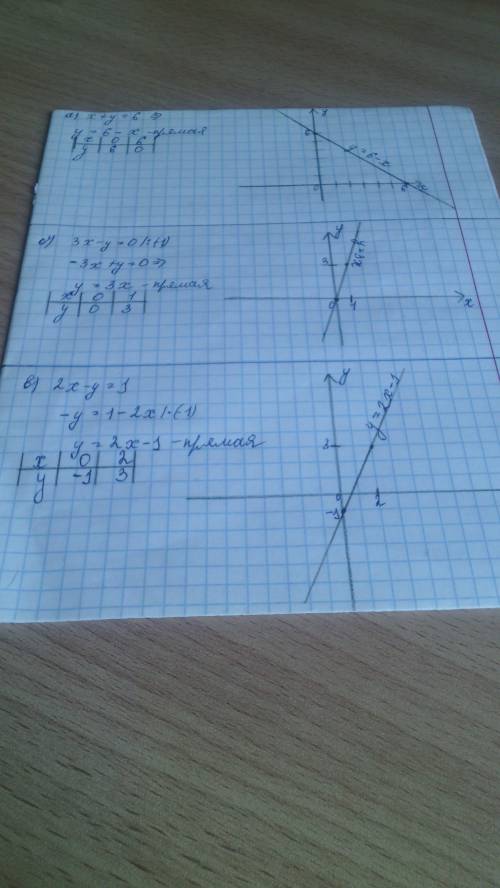 а) x+y=6 ⇒
y=6-x -прямая
x | 0 | 6
y | 6 | 0
y
6
y=6-x
0
6
x
б) 3x-y=0 |·(-1)
-3x+y=0 ⇒
y=3x -прямая
x | 0 | 1
y | 0 | 3
y
3
y=3x
0 1
x
в) 2x-y=1
-y=1-2x |·(-1)
y=2x-1 -прямая
x | 0 | 2
y | -1 | 3
y
y=2x-1
3
0
2
-1